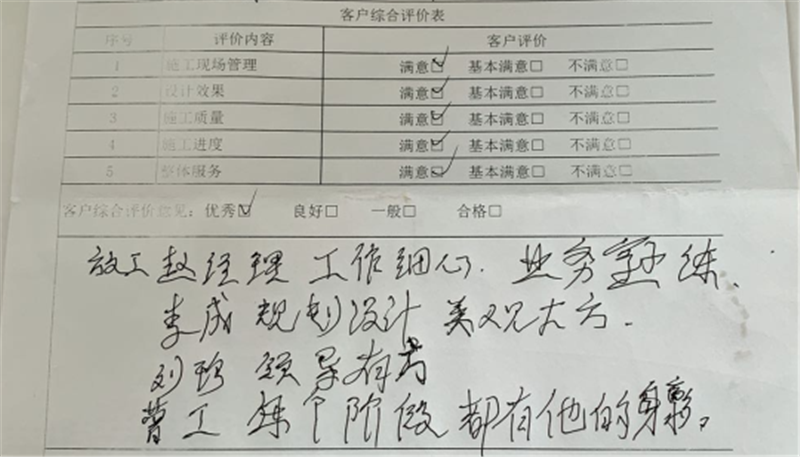 客户综合评价表
序号 评价内容 客户评价
1 施工现场管理 满意☑ 基本满意□ 不满意□
2 设计效果 满意☑ 基本满意□ 不满意□
3 施工质量 满意☑ 基本满意□ 不满意□
4 施工进度 满意☑ 基本满意□ 不满意□
5 整体服务 满意☑ 基本满意□ 不满意□
客户综合评价意见：优秀☑ 良好□ 一般□ 合格□
赵经理 工作细心. 业务熟练.
李成 规划设计 美观大方.
领导有方
曹工 每个阶段都有他的身影。